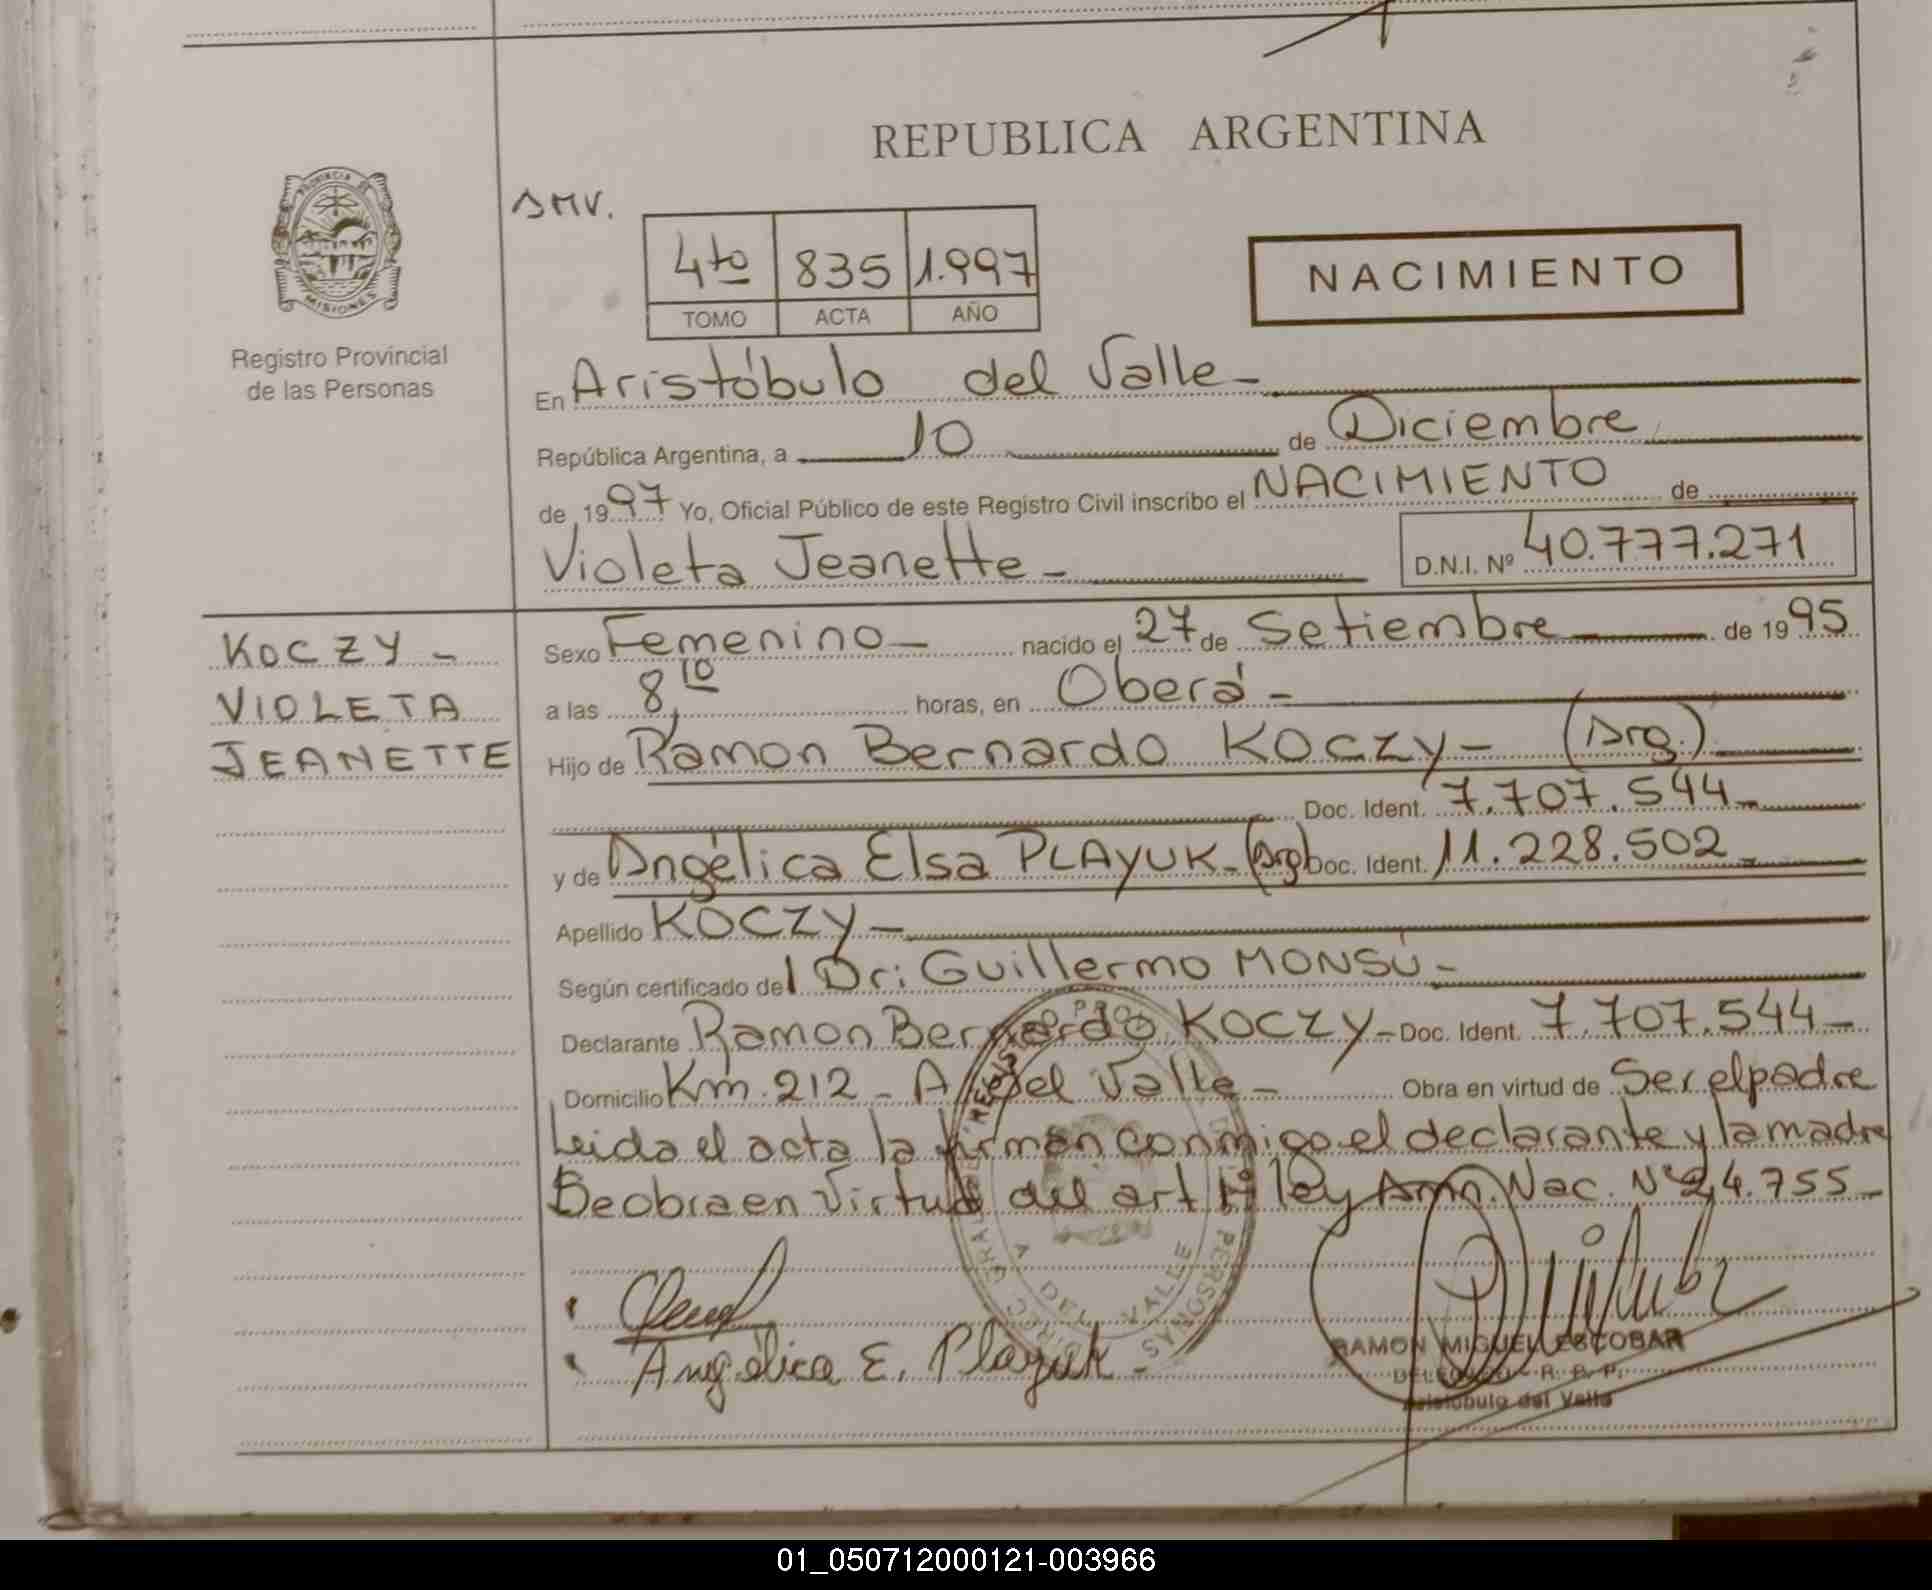 REPUBLICA ARGENTINA
PROVINCIA DE
MISIONES
Registro Provincial
de las Personas
SMV.
4to 835 1.997
TOMO ACTA AÑO
NACIMIENTO
En Aristóbulo del Valle-
República Argentina, a 10 de Diciembre
de 1997 Yo, Oficial Público de este Registro Civil inscribo el NACIMIENTO de
Violeta Jeanette- D.N.I. Nº 40.777.271
KOCZY-
VIOLETA
JEANETTE
Sexo Femenino- nacido el 27 de Setiembre de 1995
a las 8,10 horas, en Oberá-
Hijo de Ramon Bernardo KOCZY- (Arg.)
Doc. Ident. 7.707.544-
y de Angélica Elsa PLAYUK-(Arg) Doc. Ident. 11.228.502-
Apellido KOCZY-
Según certificado del Dr: Guillermo MONSÚ-
Declarante Ramon Bernardo KOCZY- Doc. Ident. 7.707.544-
Domicilio Km. 212 - A. del Valle- Obra en virtud de Ser el padre
Leida el acta la firman conmigo el declarante y la madre
Se obra en Virtud del art ley Amn. Nac. Nº 24.755-
Angélica E. Playuk-
A DEL VALLE
PERSONAS
RAMON MIGUEL ESCOBAR
DELEGADO - R. P. P.
Aristóbulo del Valle
01_050712000121-003966